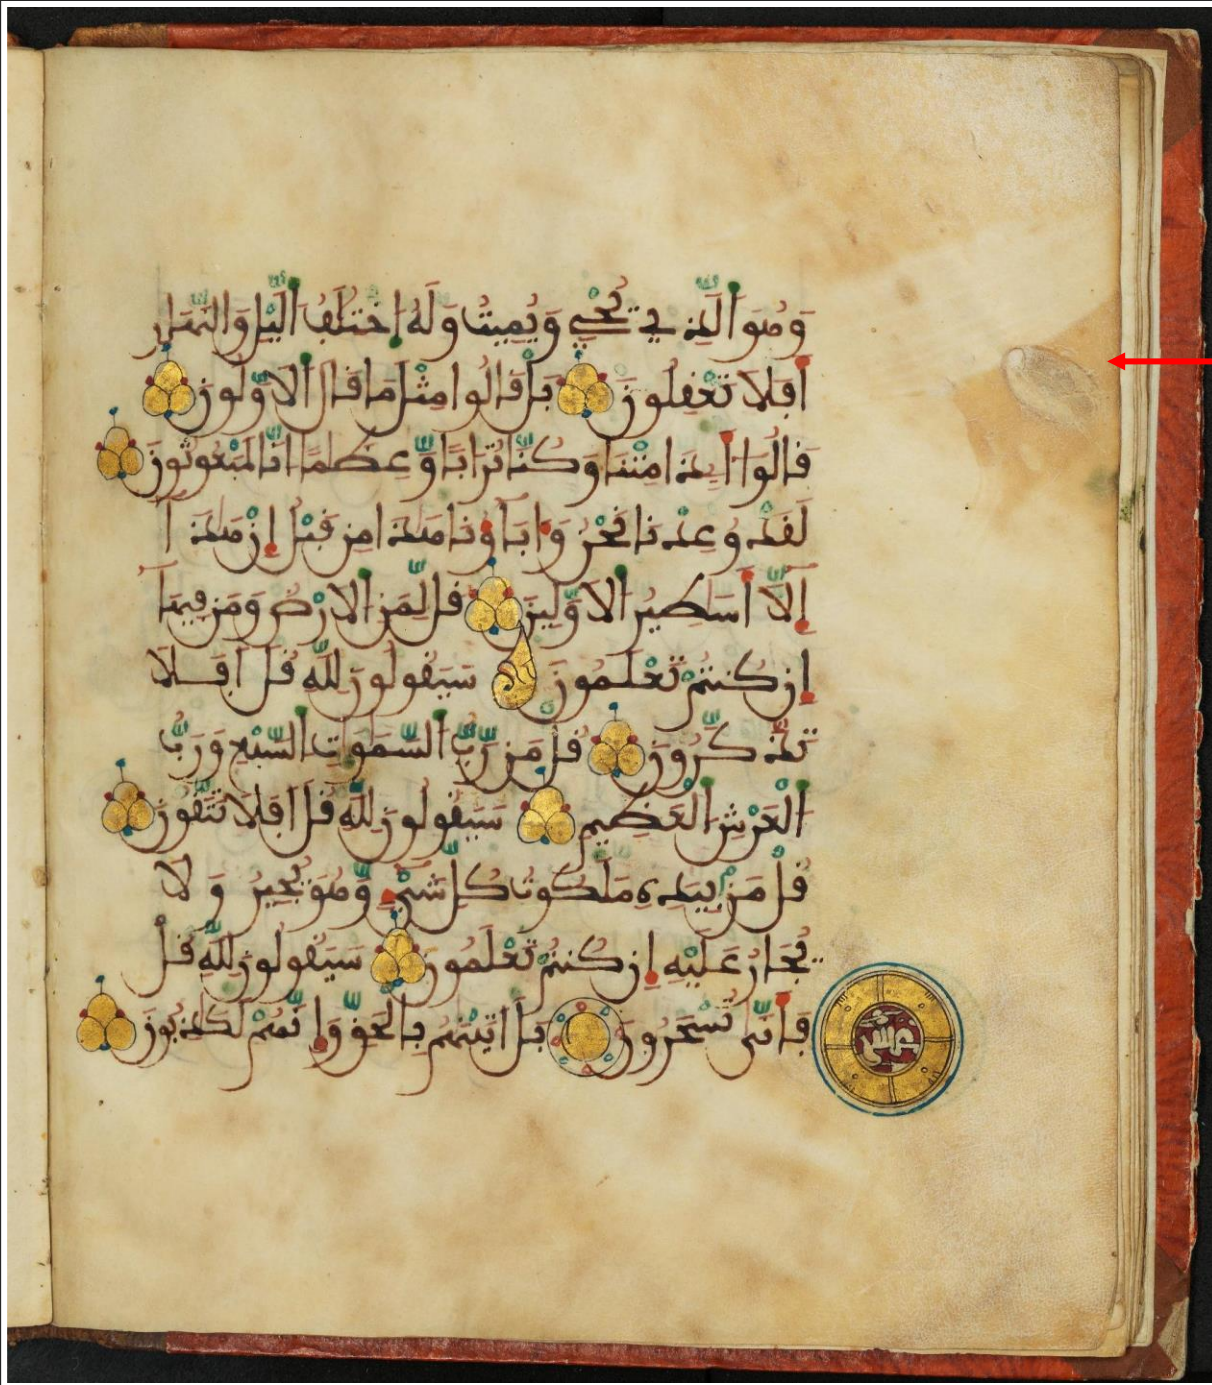 وَهُوَ الَّذِے يُحْيِۦ وَيُمِيتُ وَلَهُ اخْتِلَٰفُ الَّيْلِ وَالنَّهَارِ
أَفَلَا تَعْقِلُونَ بَلْ قَالُوا مِثْلَ مَا قَالَ الْأَوَّلُونَ
قَالُوا أَ۟ذَا مِتْنَا وَكُنَّا تُرَابًا وَّعِظَٰمًا انَّا لَمَبْعُوثُونَ
لَقَدْ وُعِدْنَا نَحْنُ وَءَابَآؤُنَا هَٰذَا مِن قَبْلُ إِنْ هَٰذَآ
إِلَّا أَسَٰطِيرُ الْأَوَّلِينَ قُل لِّمَنِ الْأَرْضُ وَمَن فِيهَآ
إِن كُنتُمْ تَعْلَمُونَ سَيَقُولُونَ لِلَّهِ قُلْ أَفَلَا
تَذَّكَّرُونَ قُلْ مَن رَّبُّ السَّمَٰوَٰتِ السَّبْعِ وَرَبُّ
الْعَرْشِ الْعَظِيمِ سَيَقُولُونَ لِلَّهِ قُلْ أَفَلَا تَتَّقُونَ
قُلْ مَنْ بِيَدِهِ مَلَكُوتُ كُلِّ شَيْءٍ وَّهُوَ يُجِيرُ وَلَا
يُجَارُ عَلَيْهِ إِن كُنتُمْ تَعْلَمُونَ سَيَقُولُونَ لِلَّهِ قُلْ
فَأَنَّىٰ تُسْحَرُونَ بَلْ أَتَيْنَٰهُم بِالْحَقِّ وَإِنَّهُمْ لَكَٰذِبُونَ